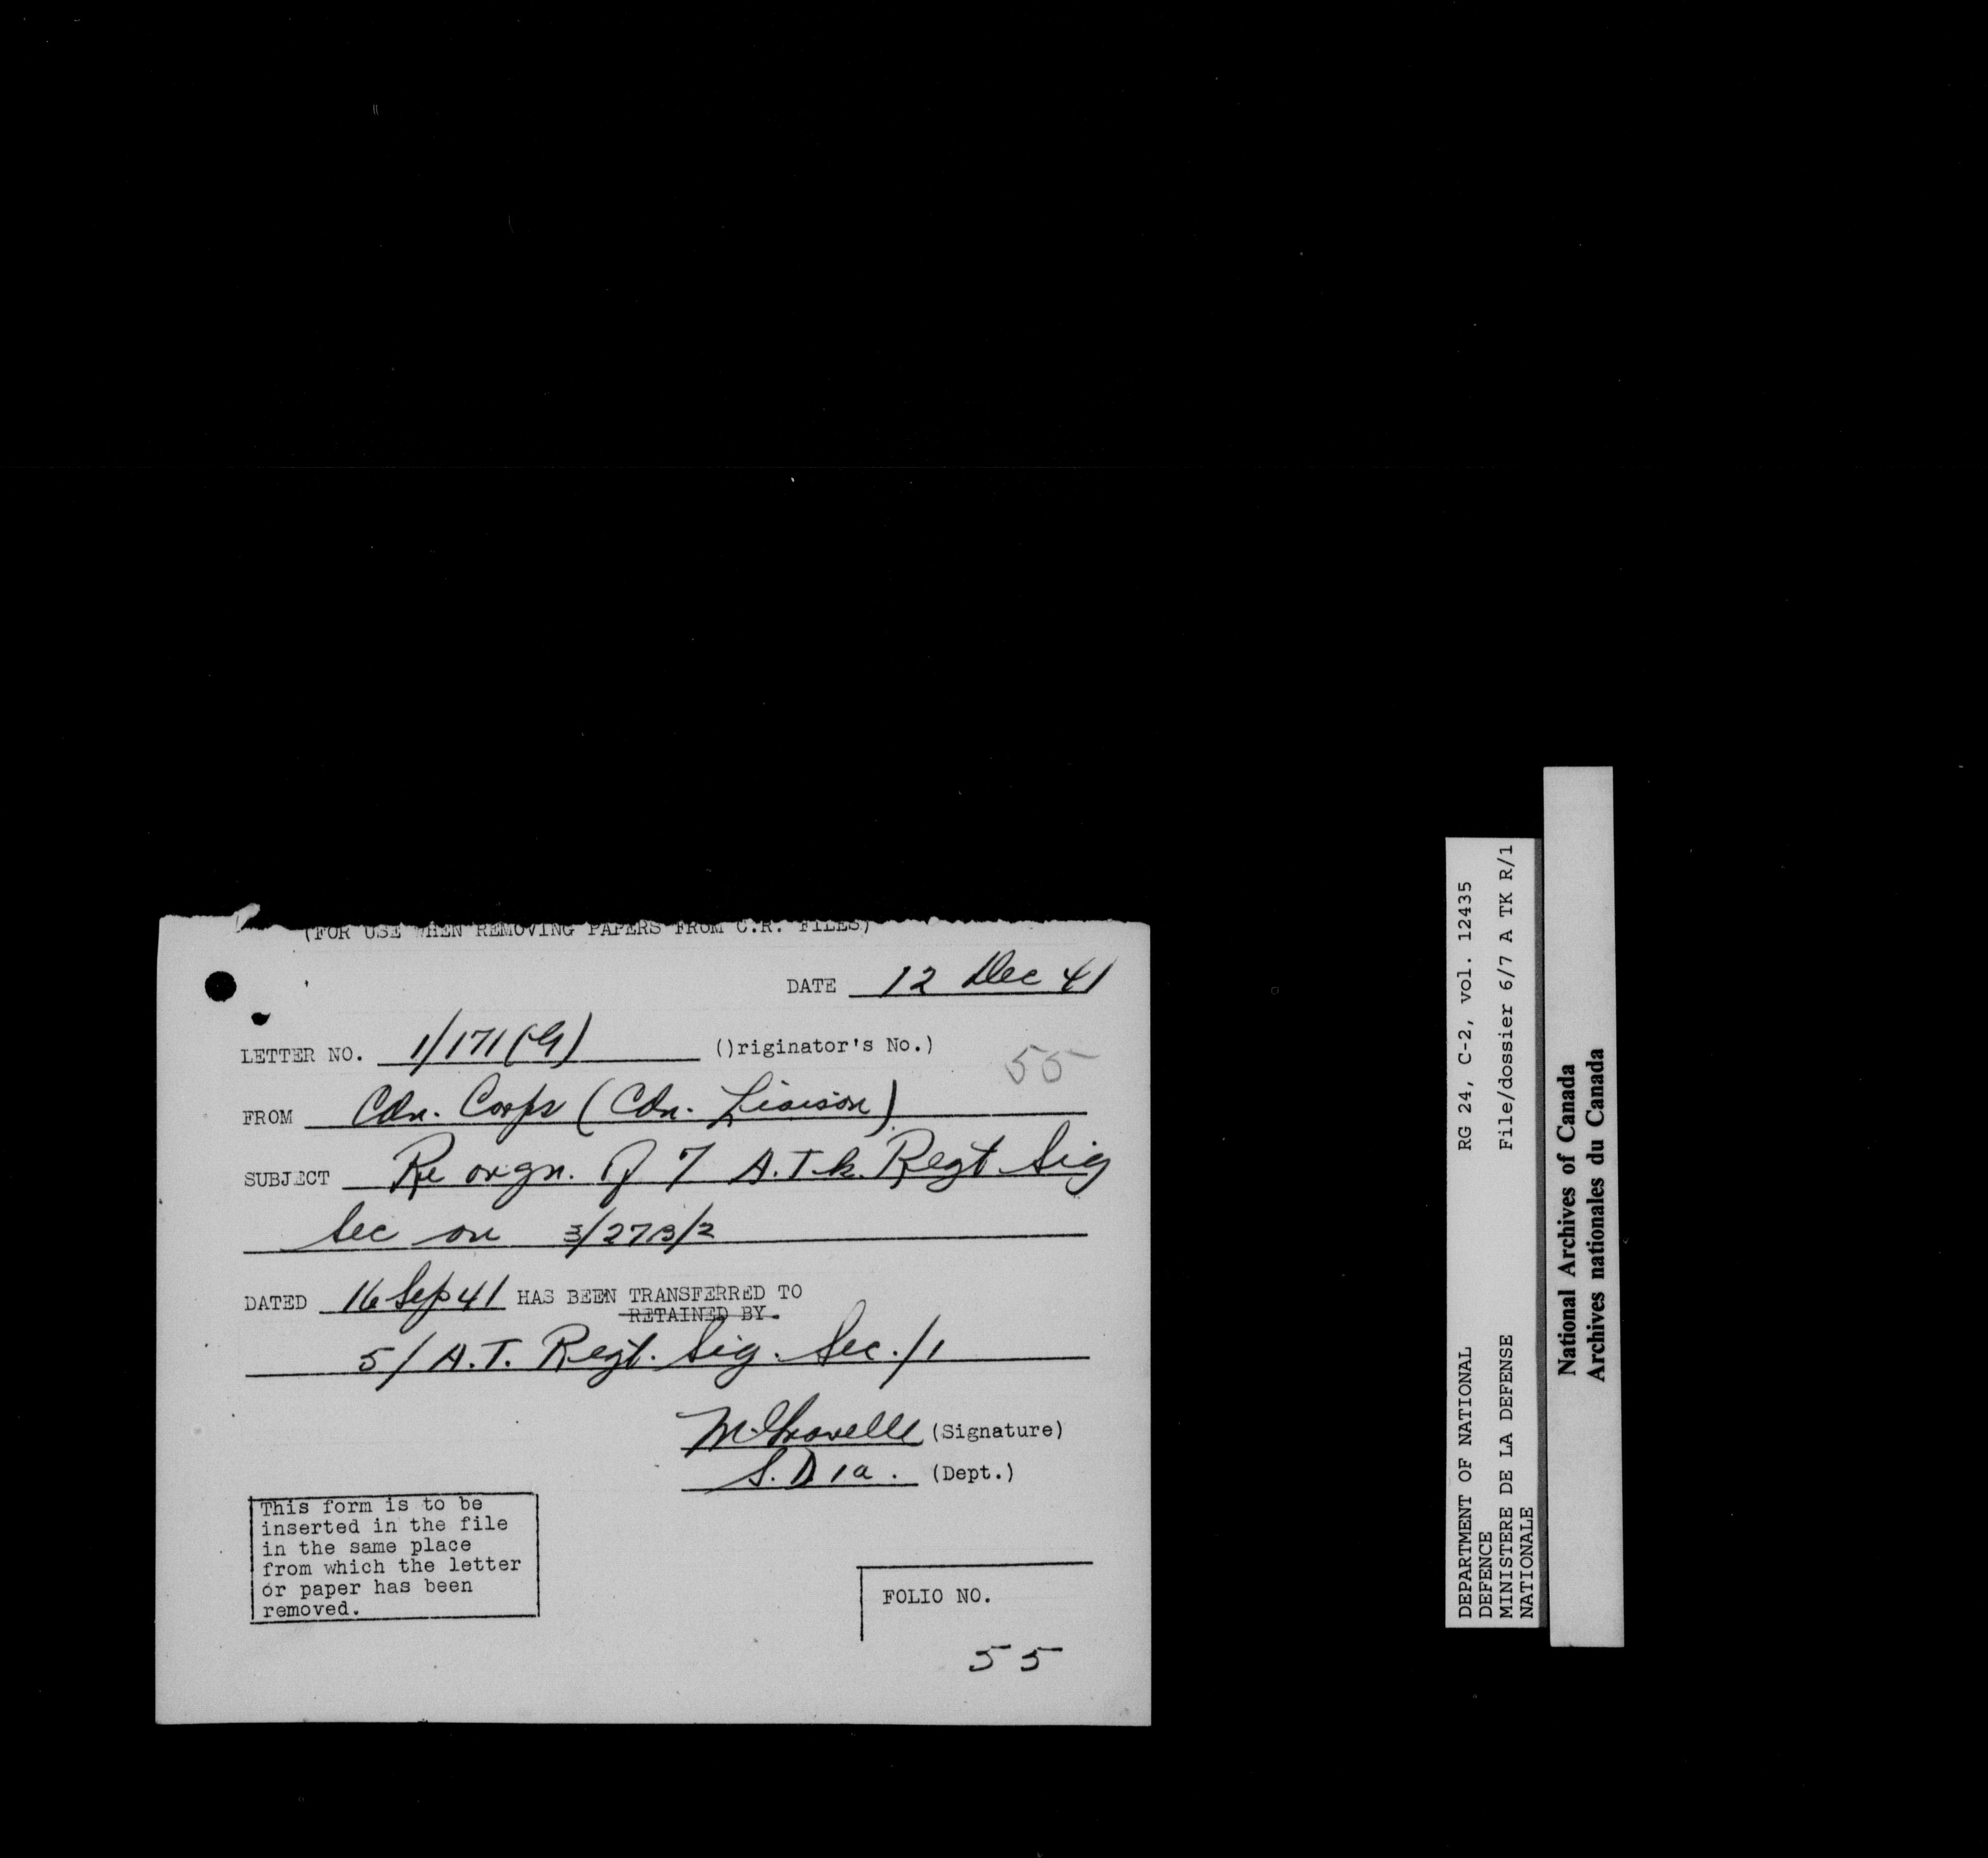 (FOR USE WHEN REMOVING PAPERS FROM C.R. FILES)
DATE 12 Dec 41
LETTER NO. 1/171(G) ()riginator's No.)
55
FROM Cdn. Corps (Cdn. Liaison)
SUBJECT Re orgn. of 7 A.Tk. Regt Sig
Sec on 3/27B/2
DATED 16 Sep 41 HAS BEEN TRANSFERRED TO
RETAINED BY.
5/A.T. Regt. Sig. Sec./1
(Signature)
S.D.1a. (Dept.)
This form is to be
inserted in the file
in the same place
from which the letter
or paper has been
removed.
FOLIO NO.
55
DEPARTMENT OF NATIONAL RG 24, C-2, vol. 12435
DEFENCE
MINISTERE DE LA DEFENSE File/dossier 6/7 A TK R/1
NATIONALE
National Archives of Canada
Archives nationales du Canada